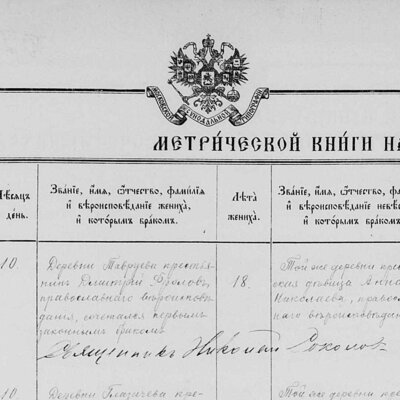 МОСКОВСКОЙ СѴНОДАЛЬНОЙ ТИПОГРАФІИ
МЕТРИ́ЧЕСКОЙ КНИ́ГИ НА
Мѣсяцъ
день.
Зва́ніе, и҆́мя, ѻ҆́тчество, фамі́лїа
и҆ вѣроисповѣ́данїе жениха̀,
и҆ кото́рымъ бра́комъ.
Лѣ́та
жениха̀.
Зва́ніе, и҆́мя, ѻ҆́тчество, фамі́лїа
и҆ вѣроисповѣ́данїе невѣ
и҆ кото́рымъ брако́м
10.
Деревни крестья
нинъ Димитрій Фроловъ,
православнаго вѣроисповѣ
данія, сочетался первымъ
законнымъ бракомъ
18.
Той же деревни кре
ская дѣвица Анна
Николаева, правосл
наго вѣроисповѣдан
Священникъ Николай Соколов
10.
Деревни кре
Той же деревни